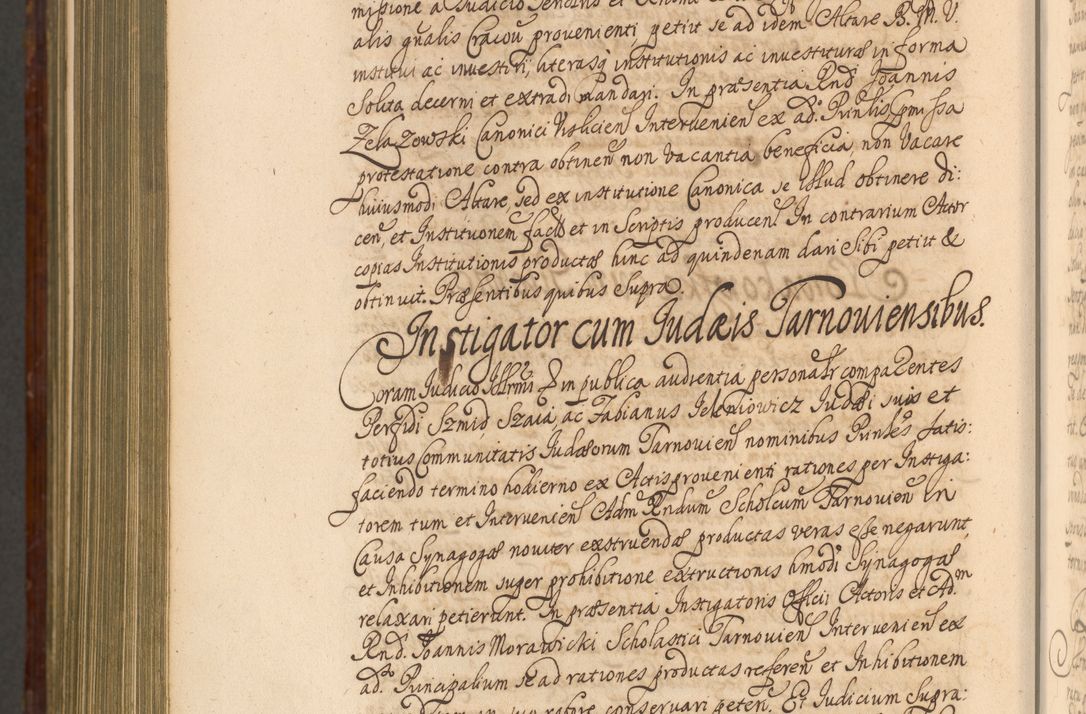 missione a Judicio
alis qualis Cracou provenienti petiit se ad idem Altare B. M. V.
institui ac investiri, literasq institutionis ac investituræ in forma
solita decerni et extradi mandari. In præsentia Rnd Joannis
Zelazowski Canonici Vislicien Intervenien ex ad. Prinlis
protestatione contra obtinen non vacantia beneficia, non vacare
huiusmodi Altare, sed ex institutione Canonica se illud obtinere di:
cen, et Institutionem facto et in Scriptis producen. In contrarium Actor
copias Institutionis productæ hinc ad quindenam dari Sibi petiit &
obtinuit. Præsentibus quibus Supra.
Instigator cum Judæis Tarnoviensibus.
Coram Judicio Illrmi D in publica audientia personalr comparentes
Perfidi Szmid, Szaia, ac Fabianus Jeleniowicz Judæi suis et
totius Communitatis Judæorum Tarnovien nominibus Prinles satis:
faciendo termino hodierno ex Actis provenienti rationes per Instiga:
torem tum et Intervenien Adm Rndum Scholcum Tarnovien in
Causa Synagogæ noviter exstruendæ productas veras esse negarunt,
et Inhibitionem super prohibitione extructionis hmodi Synagogæ
relaxari petierunt. In præsentia Instigatoris Officii Actoris et Adm
Rnd. Joannis Morawicki Scholastici Tarnovien Intervenien ex
ad. Principalium se ad rationes productas referen et Inhibitionem
in suo ratore conservari peten. Et Judicium Supra: